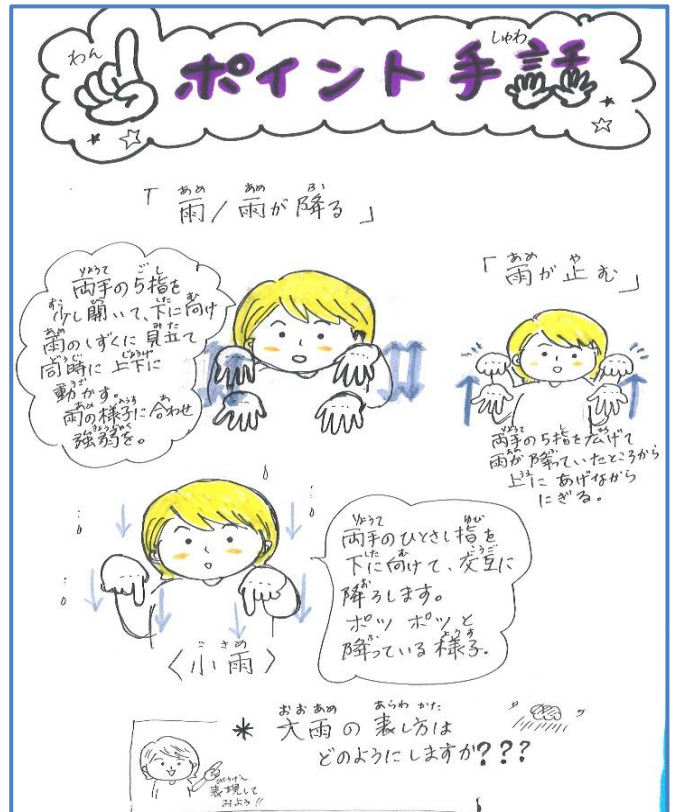 わん ポイント 手話
しゅわ
「雨/雨が降る」
あめ あめ ふ
両手の5指を
少し開いて、下に向け
雨のしずくに見立て
同時に上下に
動かす。
雨の様子に合わせ
強弱を。
「雨が止む」
あめ や
両手の5指を広げて
雨が降っていたところから
上に あげながら
にぎる。
両手のひとさし指を
下に向けて、交互に
降ろします。
ポツ ポツと
降っている様子。
〈小雨〉
こさめ
* 大雨の表し方は
おおあめ あらわ かた
どのようにしますか???
表現して
みよう!!